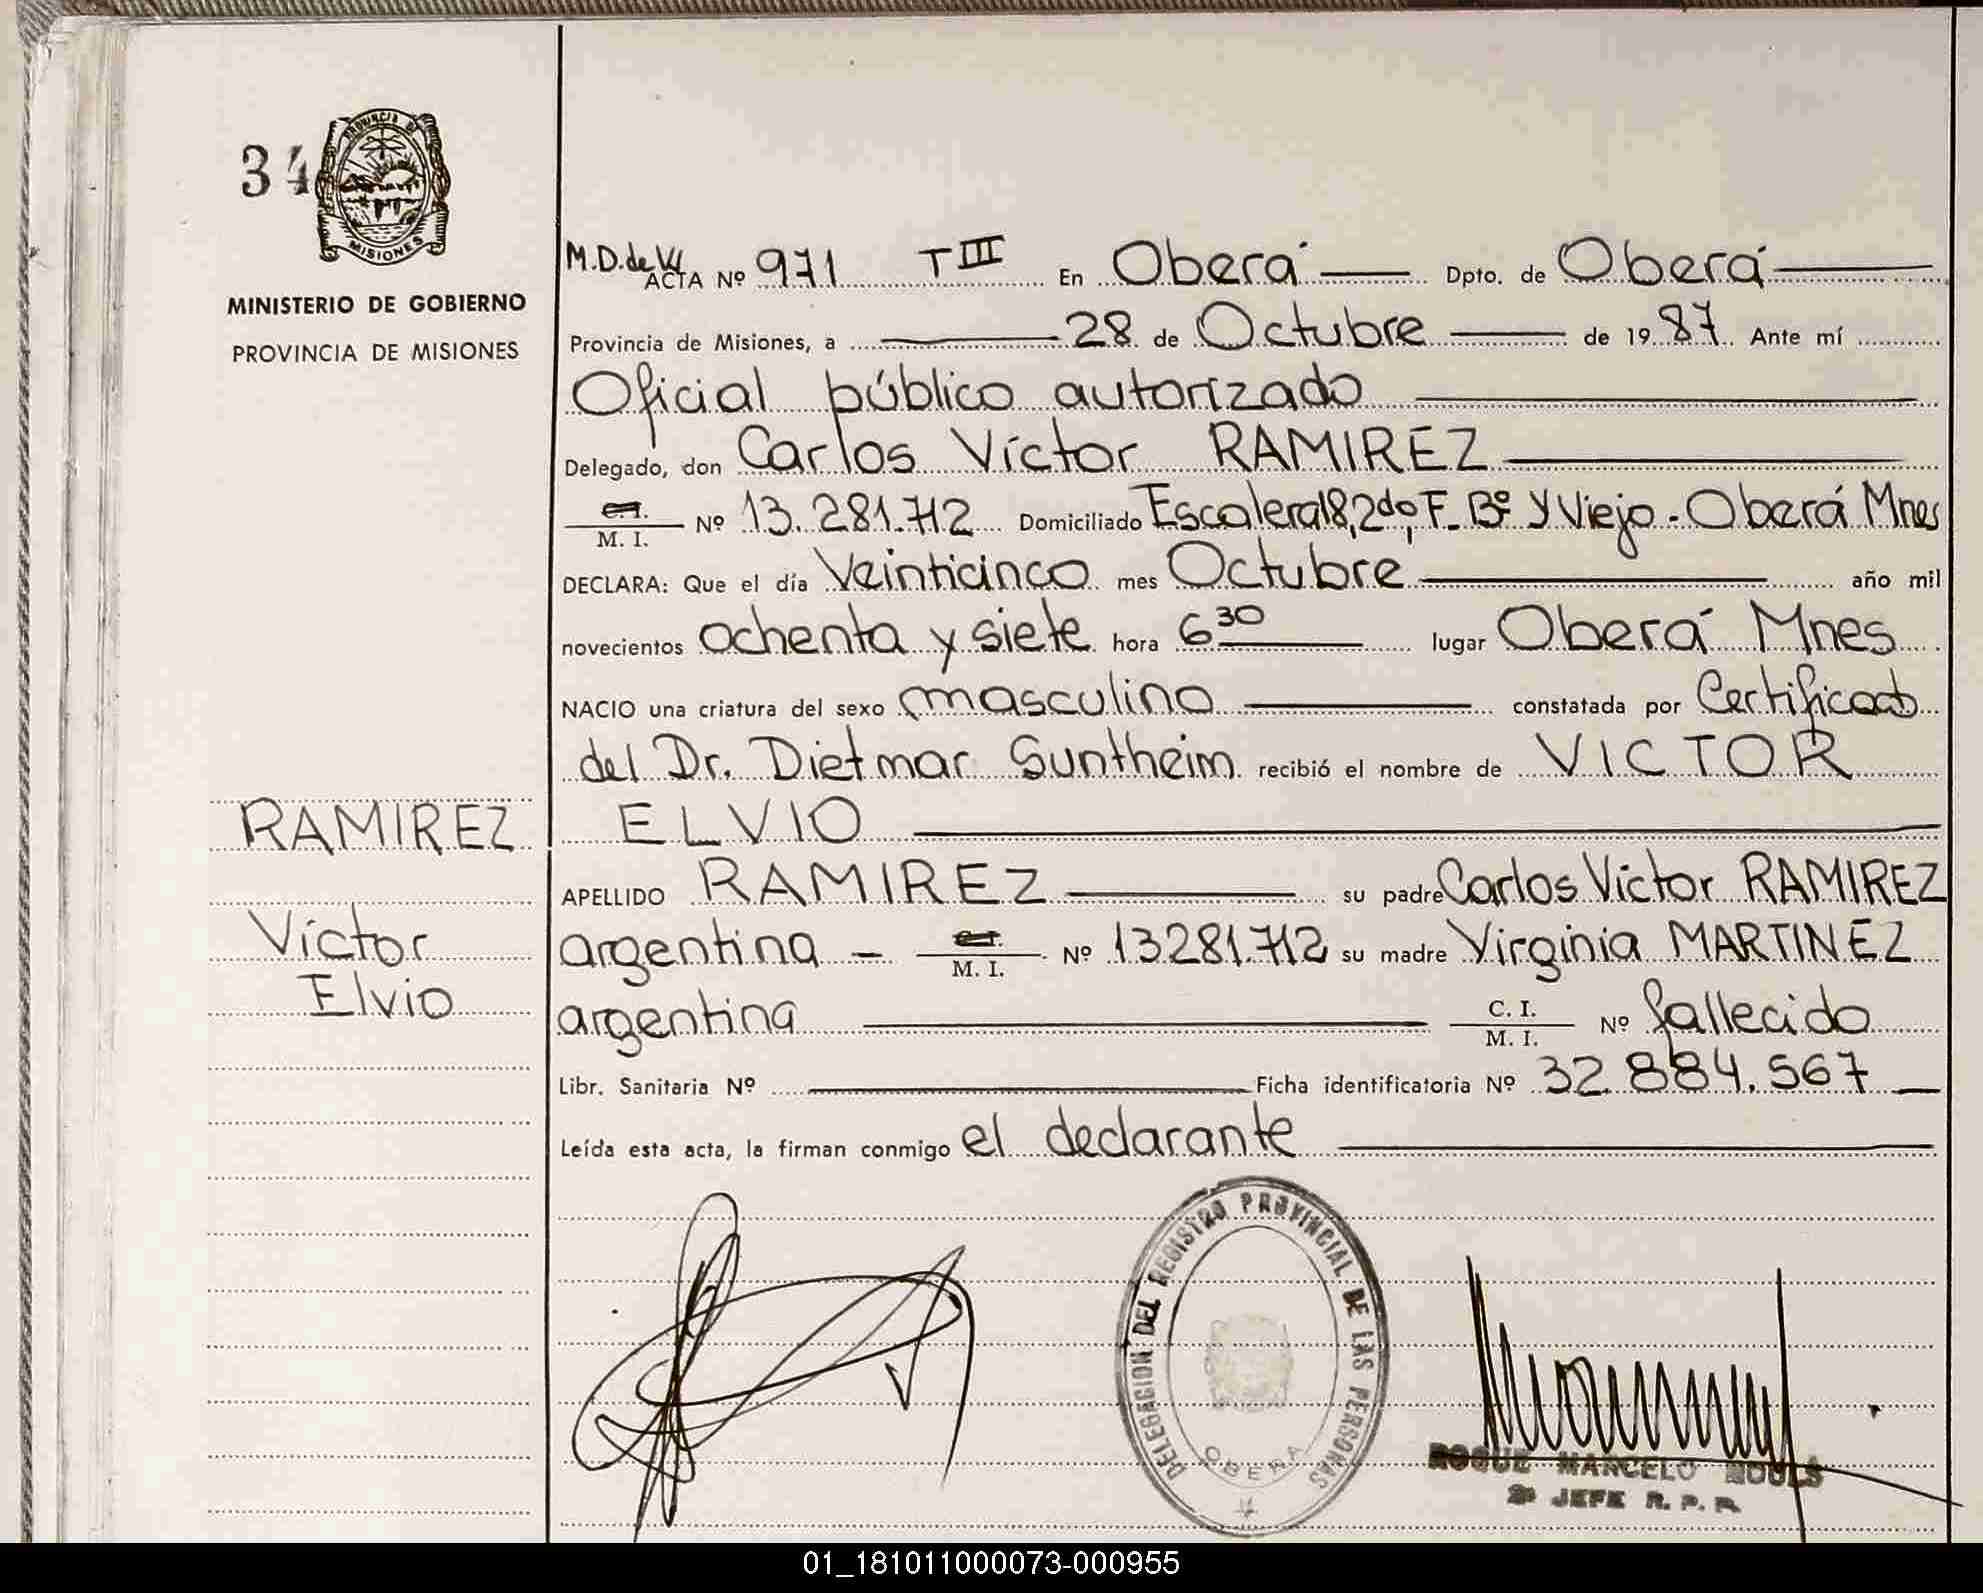 34
PROVINCIA DE
MISIONES
MINISTERIO DE GOBIERNO
PROVINCIA DE MISIONES
RAMIREZ
Víctor
Elvio
M.D. de
ACTA Nº 971 T III En Oberá Dpto. de Oberá
Provincia de Misiones, a 28 de Octubre de 1987 Ante mí
Oficial público autorizado
Delegado, don Carlos Víctor RAMIREZ
C.I.
M. I. Nº 13.281.712 Domiciliado Escalera 18, 2do, F. Bº Y Viejo - Oberá Mnes
DECLARA: Que el día Veinticinco mes Octubre año mil
novecientos ochenta y siete hora 6 30 lugar Oberá Mnes
NACIO una criatura del sexo masculino constatada por Certificado
del Dr. Dietmar Suntheim recibió el nombre de VICTOR
ELVIO
APELLIDO RAMIREZ su padre Carlos Victor RAMIREZ
argentina - C.I. M. I. Nº 13281.712 su madre Virginia MARTINEZ
argentina C. I. M. I. Nº fallecido
Libr. Sanitaria Nº Ficha identificatoria Nº 32.884.567
Leída esta acta, la firman conmigo el declarante
DELEGACION DEL REGISTRO PROVINCIAL DE LAS PERSONAS
OBERA
ROQUE MARCELO
2º JEFE R. P. P.
01_181011000073-000955